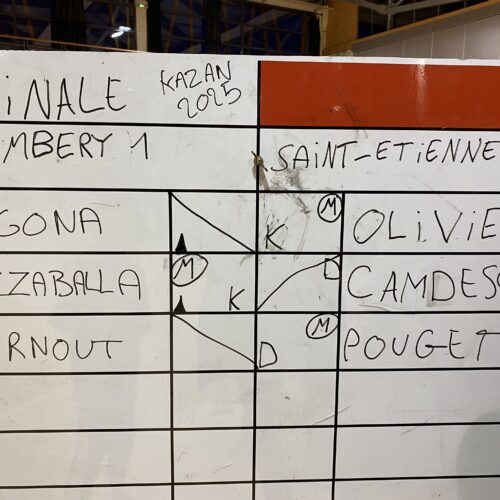 iNALE KAZAN
2025
MBERY 1 SAiNT-ETiENNE
GONA K M OLiViE
ZZABALLA M K D CAMDESC
RNOUT D M POUGET